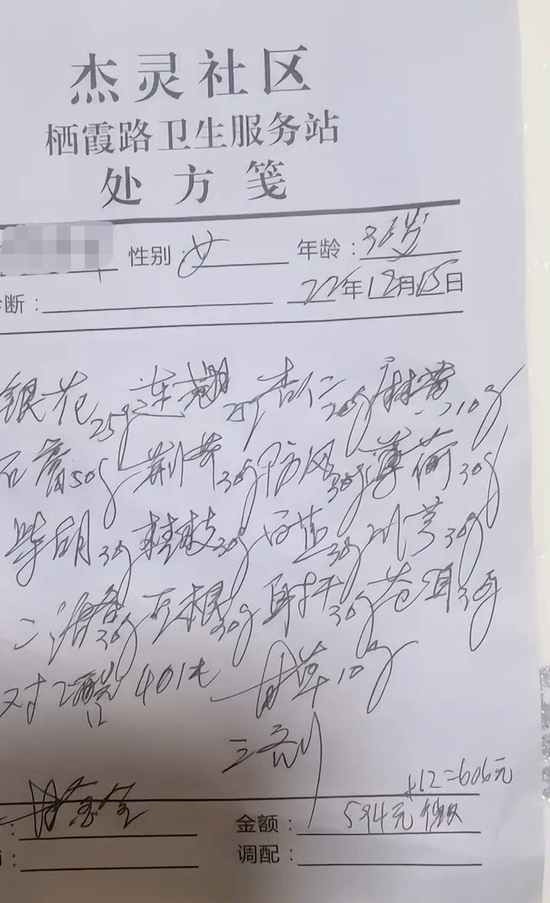 杰灵社区
栖霞路卫生服务站
处方笺
性别 女 年龄：3岁
诊断： 22年12月15日
银花25g 连翘 杏仁20g 麻黄10g
石膏50g 荆芥30g 防风30g 薄荷30g
柴胡30g 桂枝30g 白芷30g 川芎30g
30g 豆根30g 射干30g 苍耳30g
对乙酰 40 甘草10g
三剂
+12=606元
金额： 594元
调配：